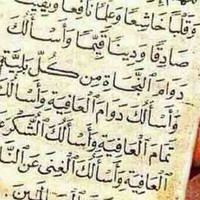 وَقَلْبًا خَاشِعًا وَعِلْمًا نَافِعًا وَيَقِينًا
صَادِقًا وَدِينًا قَيِّمًا وَأَسْأَلُكَ
دَوَامَ ٱلنَّجَاةِ مِن كُلِّ بَلِيَّةٍ
وَأَسْأَلُكَ دَوَامَ ٱلْعَافِيَةِ وَأَسْأَلُكَ
تَمَامَ ٱلْعَافِيَةِ وَأَسْأَلُكَ ٱلشُّكْرَ عَ
ٱلْعَافِيَةِ وَأَسْأَلُكَ ٱلْغِنَى عَنِ ٱلنَّا